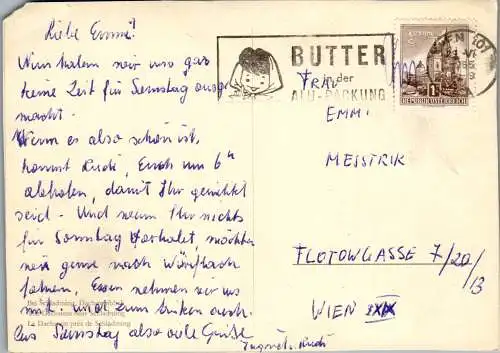 Liebe Emmi!
Nun haben wir uns gar
keine Zeit für Samstag ausge-
macht.
Wenn es also schön ist,
kommt Rudi, Euch um 6h
abholen, damit Ihr gerichtet
seid. Und wenn Ihr nichts
für Sonntag vorhabt, möchten
wir gerne nach Würflach
fahren, Essen nehmen wir uns
mit und zum trinken auch.
Bis Samstag also viele Grüße
Rudi
Bei Schladning, Dachsteinblick
near Schladning
La Dachstein près de Schladning
BUTTER
in der
ALU-PACKUNG
WIEN
VI
S
1
REPUBLIK ÖSTERREICH
FRAU
EMMI
MESSTRIK
FLOTOWGASSE 7/20/
13
WIEN XIX